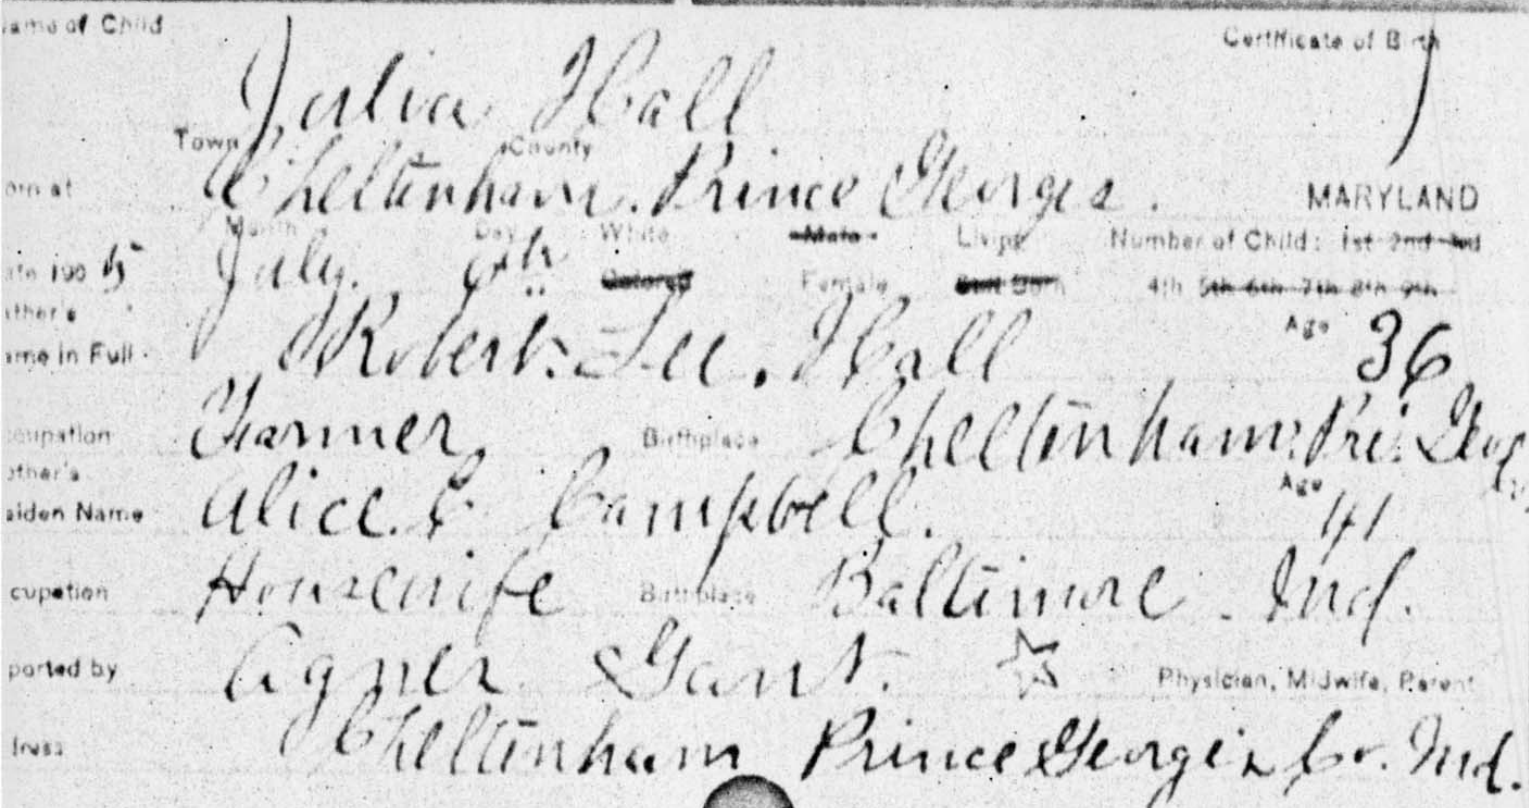 ame of Child Certificate of Birth
Julia Hall
Town County
orn at Cheltenham. Prince Georges. MARYLAND
Month Day White Male Living Number of Child: 1st 2nd 3rd
ate 190 5 July. 6th Colored Female Still Born 4th 5th 6th 7th 8th 9th
ather's Age
ame in Full Robert. Lee. Hall 36
cupation Farmer. Birthplace Cheltenham. Pri. Geo
other's Age
aiden Name Alice. C Campbell. 41
cupation Housewife Birthplace Baltimore. Md.
ported by Agnes Gant. Physician, Midwife, Parent
dress Cheltenham Prince Georges Co. Md.